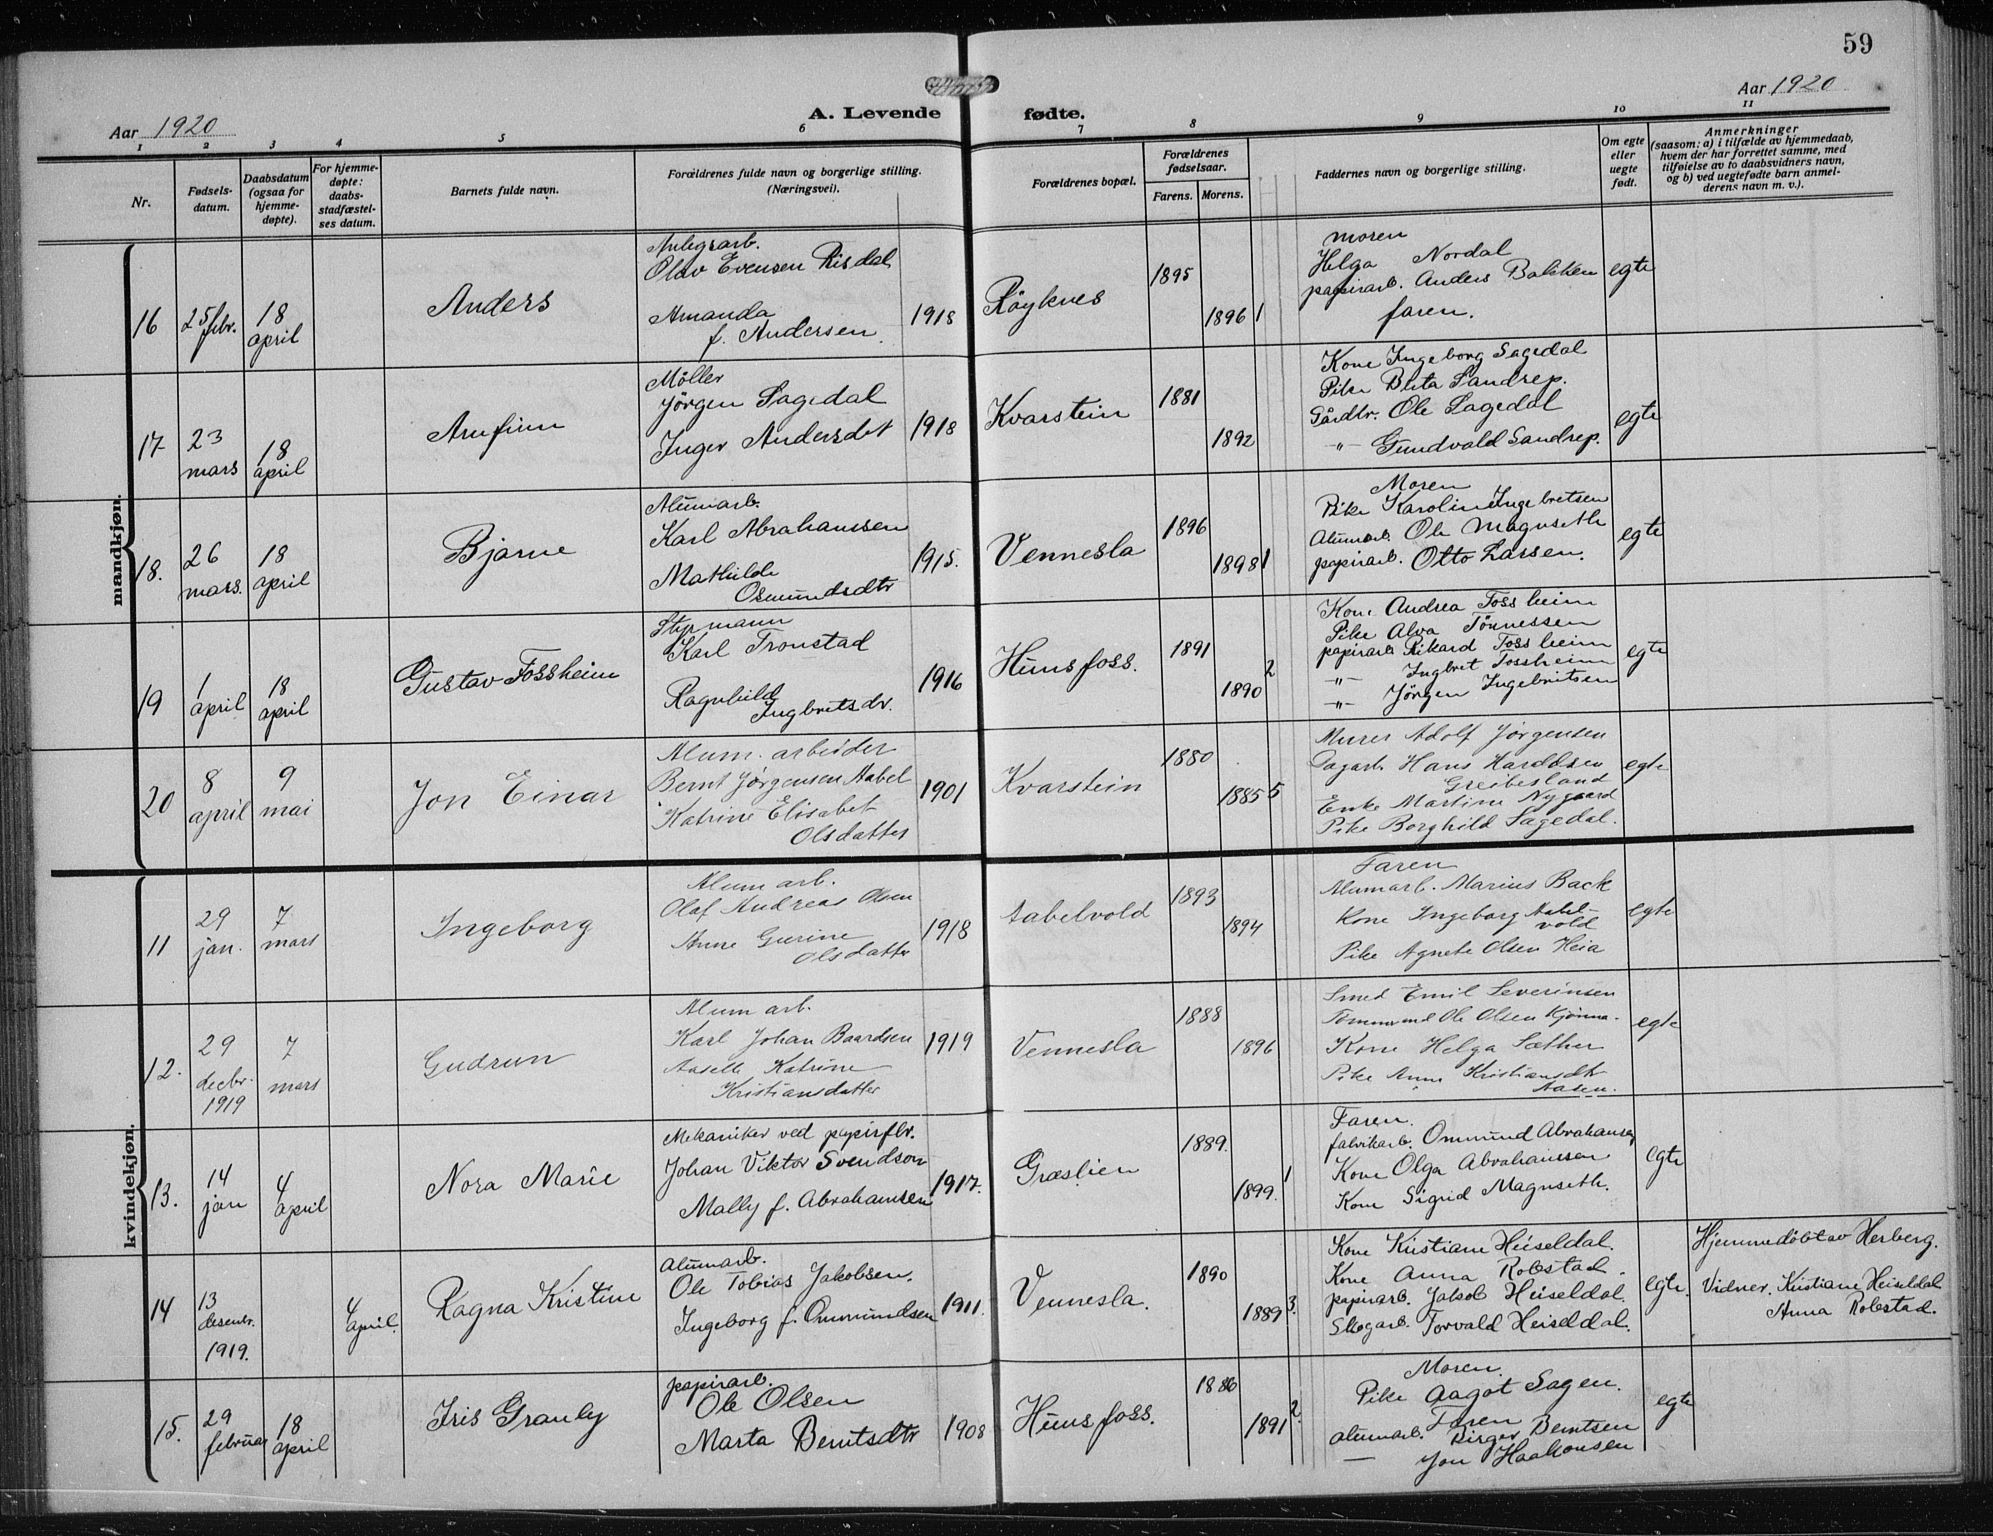 59
Aar 1920
A. Levende fødte.
Aar 1920
1 2 3 4 5 6 7 8 9 10 11
Nr.
Fødsels-
datum.
Daabsdatum
(ogsaa for
hjemme-
døpte).
For hjemme-
døpte:
daabs-
stadfæstel-
ses datum.
Barnets fulde navn.
Forældrenes fulde navn og borgerlige stilling.
(Næringsvei).
Forældrenes bopæl.
Forældrenes
fødselsaar.
Farens. Morens.
Faddernes navn og borgerlige stilling.
Om egte
eller
uegte
født.
Anmerkninger
(saasom: a) i tilfælde av hjemmedaab,
hvem der har forrettet samme, med
tilføielse av to daabsvidners navn,
og b) ved uegtefødte barn anmel-
derens navn m. v.).
mandkjøn.
16
25 febr.
18
april
Anders
Anlegsarb.
Olav Evensen Risdal
Amanda
f. Andersen
1918
Röyknes
1895
1896
1
moren
Helga Nordal
papirarb. Anders Bakken
faren.
egte
17
23
mars
18
april
Arnfinn
Möller
Jörgen Sagedal
Inger Andersdet
1918
Kvarstein
1881
1892
Kone Ingeborg Sagedal
Pike Berta Sandrep.
Gårdbr. Ole Sagedal
-"- Gundvald Sandrep.
egte
18.
26
mars.
18
april
Bjarne
Alumarb.
Karl Abrahamsen
Mathilde
Osmundsdtr
1915.
Vennesla
1896
1898
1
Moren
Pike Karolin Ingebretsen
Alumarb. Ole Magnseth
papirarb. Otto Larsen.
egte
19
1
april
18
april
Gustav Fossheim
Styrmann
Karl Tronstad
Ragnhild
Ingbretsdr.
1916
Hunsfoss.
1891
1890
2
Kone Andrea Fossheim
Pike Alva Tönnessen
papirarb. Rikard Fossheim
-"- Ingbret Fossheim
-"- Jörgen Ingebritsen
egte
20
8
april
9
mai
Jon Einar
Alum. arbeider
Bernt Jørgensen Aabel
Katrine Elisabet
Olsdatter
1901
Kvarstein
1880
1885
5
Murer Adolf Jørgensen
Dagarb. Hans Haraldsen
Greibesland
Enke Martine Nygaard
Pike Borghild Sagedal.
egte
kvindekjøn.
11
29
jan.
7
mars
Ingeborg
Alum arb.
Olaf Andreas Olsen
Anne Gurine
Olsdatter
1918
Aabelvold
1893
1894
Faren
Alumarb. Marius Back
Kone Ingeborg Aabel-
vold
Pike Agnete Olsen Heia
egte
12.
29
decbr.
1919
7
mars
Gudrun
Alum arb.
Karl Johan Baardsen
Aaselle Katrine
Kristiansdatter
1919
Vennesla
1888
1896
Smed Emil Severinsen
Tömmermd Ole Olsen Kjønna.
Kone Helga Sæther
Pike Anne Kristiansdtr
Aasen.
egte
13.
14
jan
4
april
Nora Marie
Mekaniker ved papirfbr.
Johan Viktor Svendson
Mally f. Abrahamsen
1917.
Græslien
1889.
1899.
1
Faren.
fabrikarb. Ommund Abrahamsen
Kone Olga Abrahamsen
Kone Sigrid Magnseth.
egte
14
13
desembr.
1919.
4
april.
Ragna Kristine
Alumarb.
Ole Tobias Jakobsen.
Ingeborg f. Ommundsen
1911.
Vennesla.
1890
1889
3.
Kone Kristiane Heiseldal.
Kone Anna Robstad.
papirarb. Jakob Heiseldal.
Skogarb. Torvald Heiseldal.
egte.
Hjemmedöbt av Herberg.
Vidner. Kristiane Heiseldal
Anna Robstad.
15.
29
februar
18
april
Iris Granly
papirarb.
Ole Olsen
Marta Berntsdtr
1908
Hunsfoss.
1886
1891
2.
Moren.
Pike Aagot Sagen.
Faren
alumarb. Birger Berntsen
— Jon Haakonsen
egte